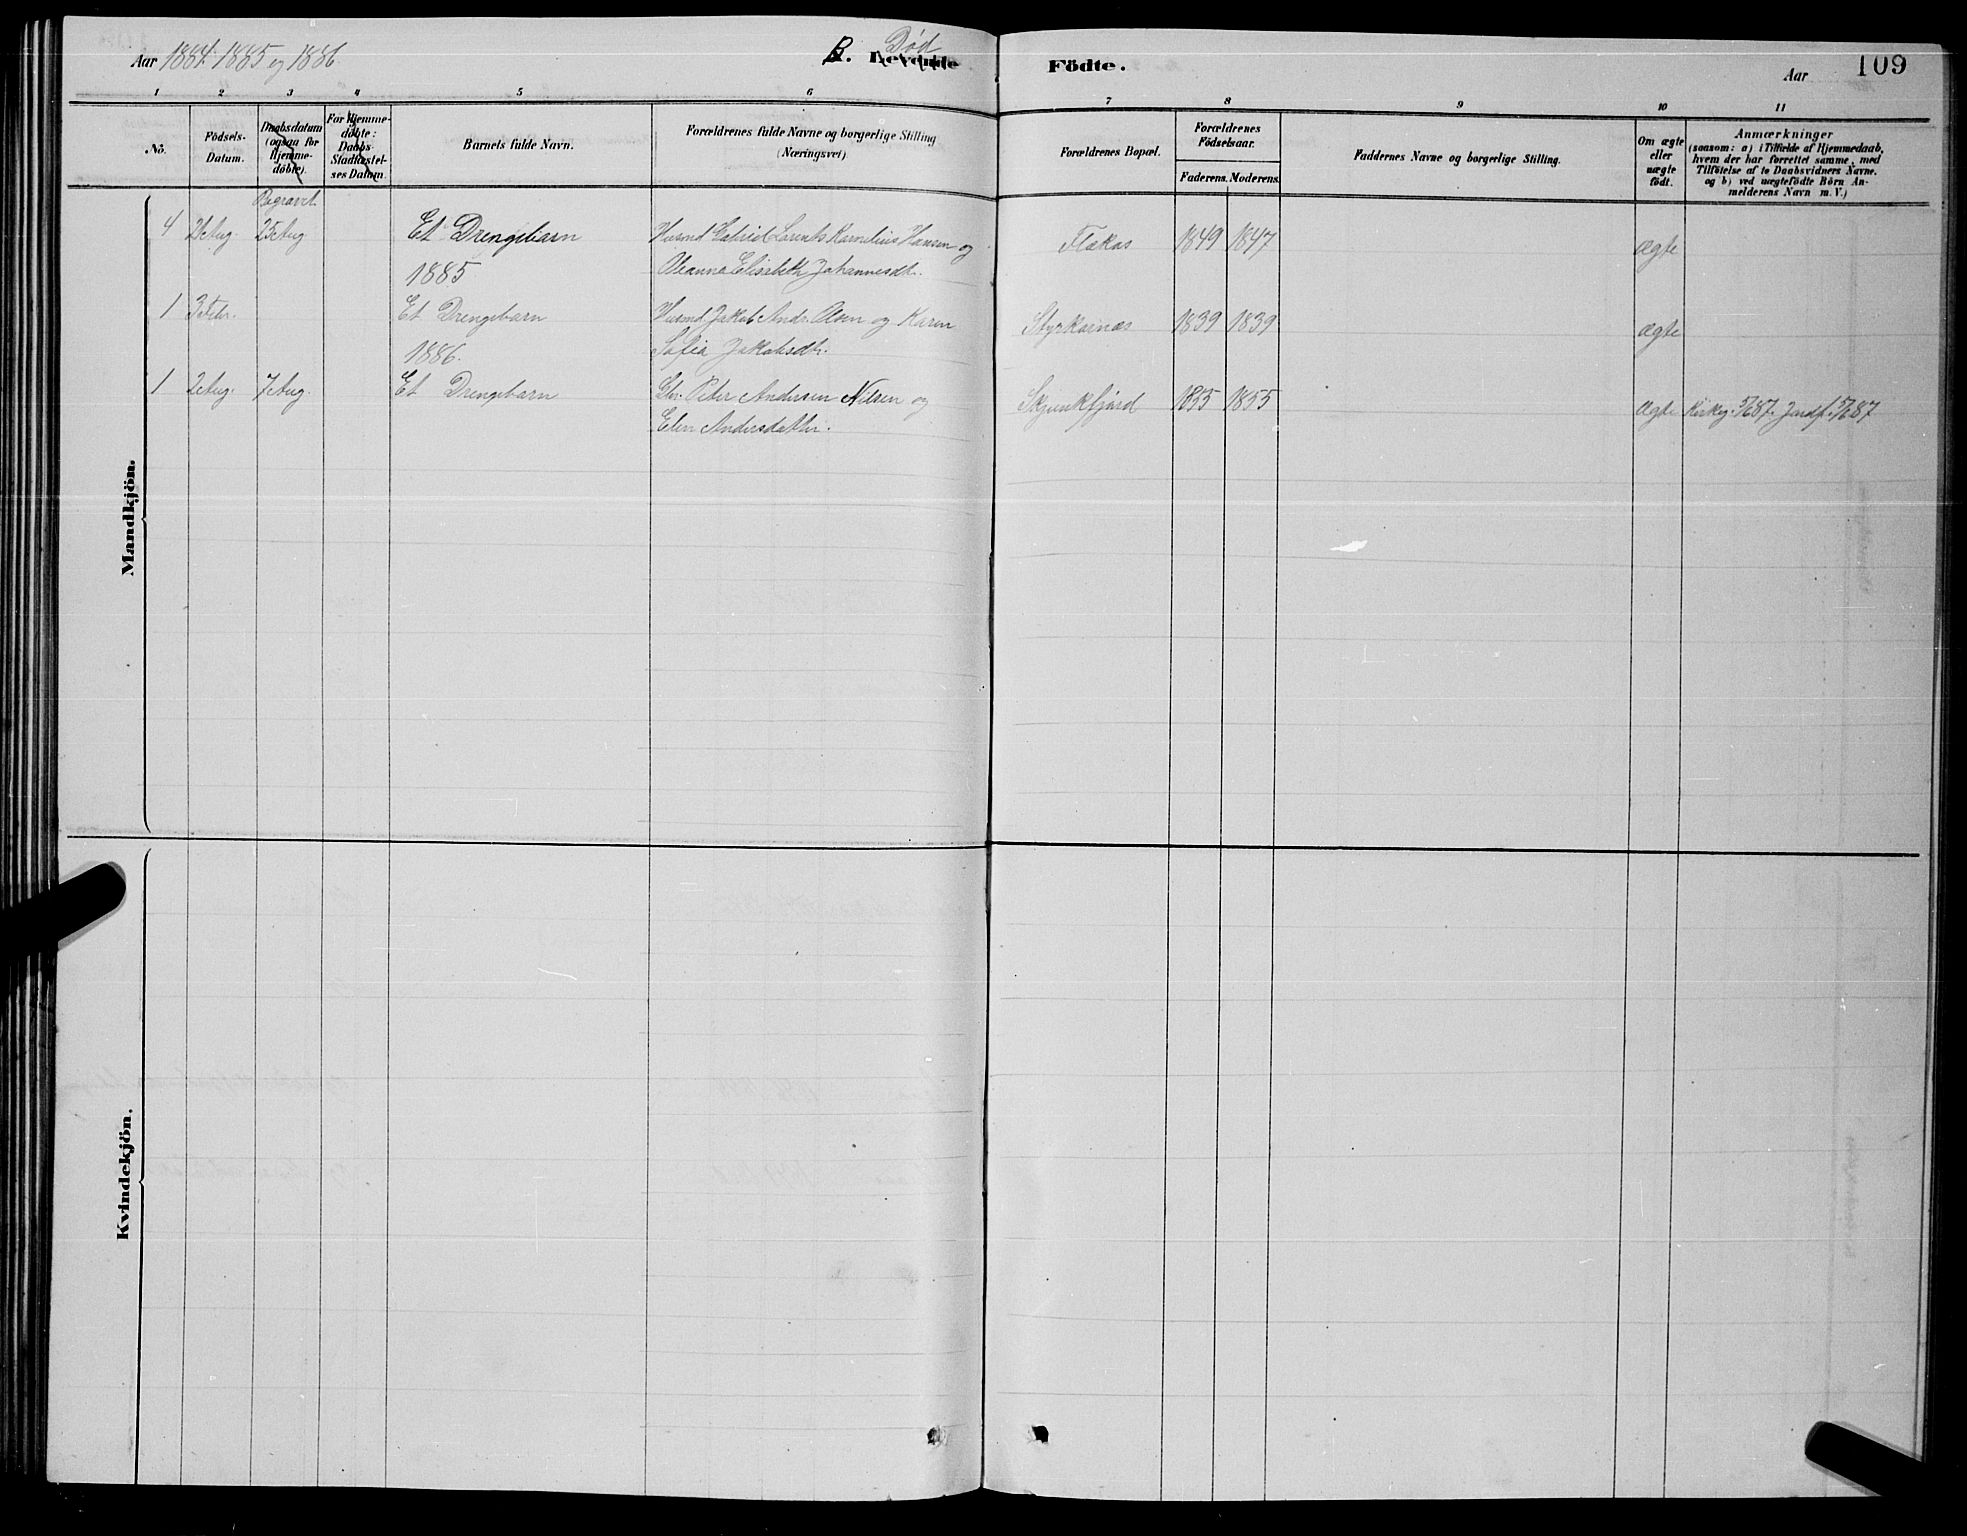 Aar 1884. 1885 og 1886.
B. Død
Levende Födte.
Aar
109
1 2 3 4 5 6 7 8 9 10 11
No.
Födsels-
Datum.
Daabsdatum
(ogsaa for
Hjemme-
döbte).
For Hjemme-
döbte:
Daabs-
Stadfæstel-
ses Datum.
Barnets fulde Navn.
Forældrenes fulde Navne og borgerlige Stilling
(Næringsvei)
Forældrenes Bopæl.
Forældrenes
Födselsaar.
Faderens. Moderens.
Faddernes Navne og borgerlige Stilling.
Om ægte
eller
uægte
födt.
Anmærkninger
(saasom: a) i Tilfælde af Hjemmedaab,
hvem der har forrettet samme, med
Tilföielse af to Daabsvidners Navne.
og b) ved uægtefödte Börn An-
melderens Navn m. V.)
Mandkjön.
Begravet.
4 21 Aug. 25 Aug Et Drengebarn Husmd Gabriel Lorents Kornelius Hansen og Flakas 1849 1847 ægte
1885 Oleanna Elisabeth Johannesdt.
1 3 Febr. Et Drengebarn Husmd Jakob Andr. Olsen og Karen Styrkesnæs 1839 1839 ægte
1886. Sofia Jakobsdtr.
1 2 Aug. 7 Aug. Et Drengebarn Peter Andersen Nilsen og Skjunkfjord 1855 1855 ægte Kirkeg. 5/6 87. Jordf. 5/6 87
Elen Andersdatter.
Kvindekjön.